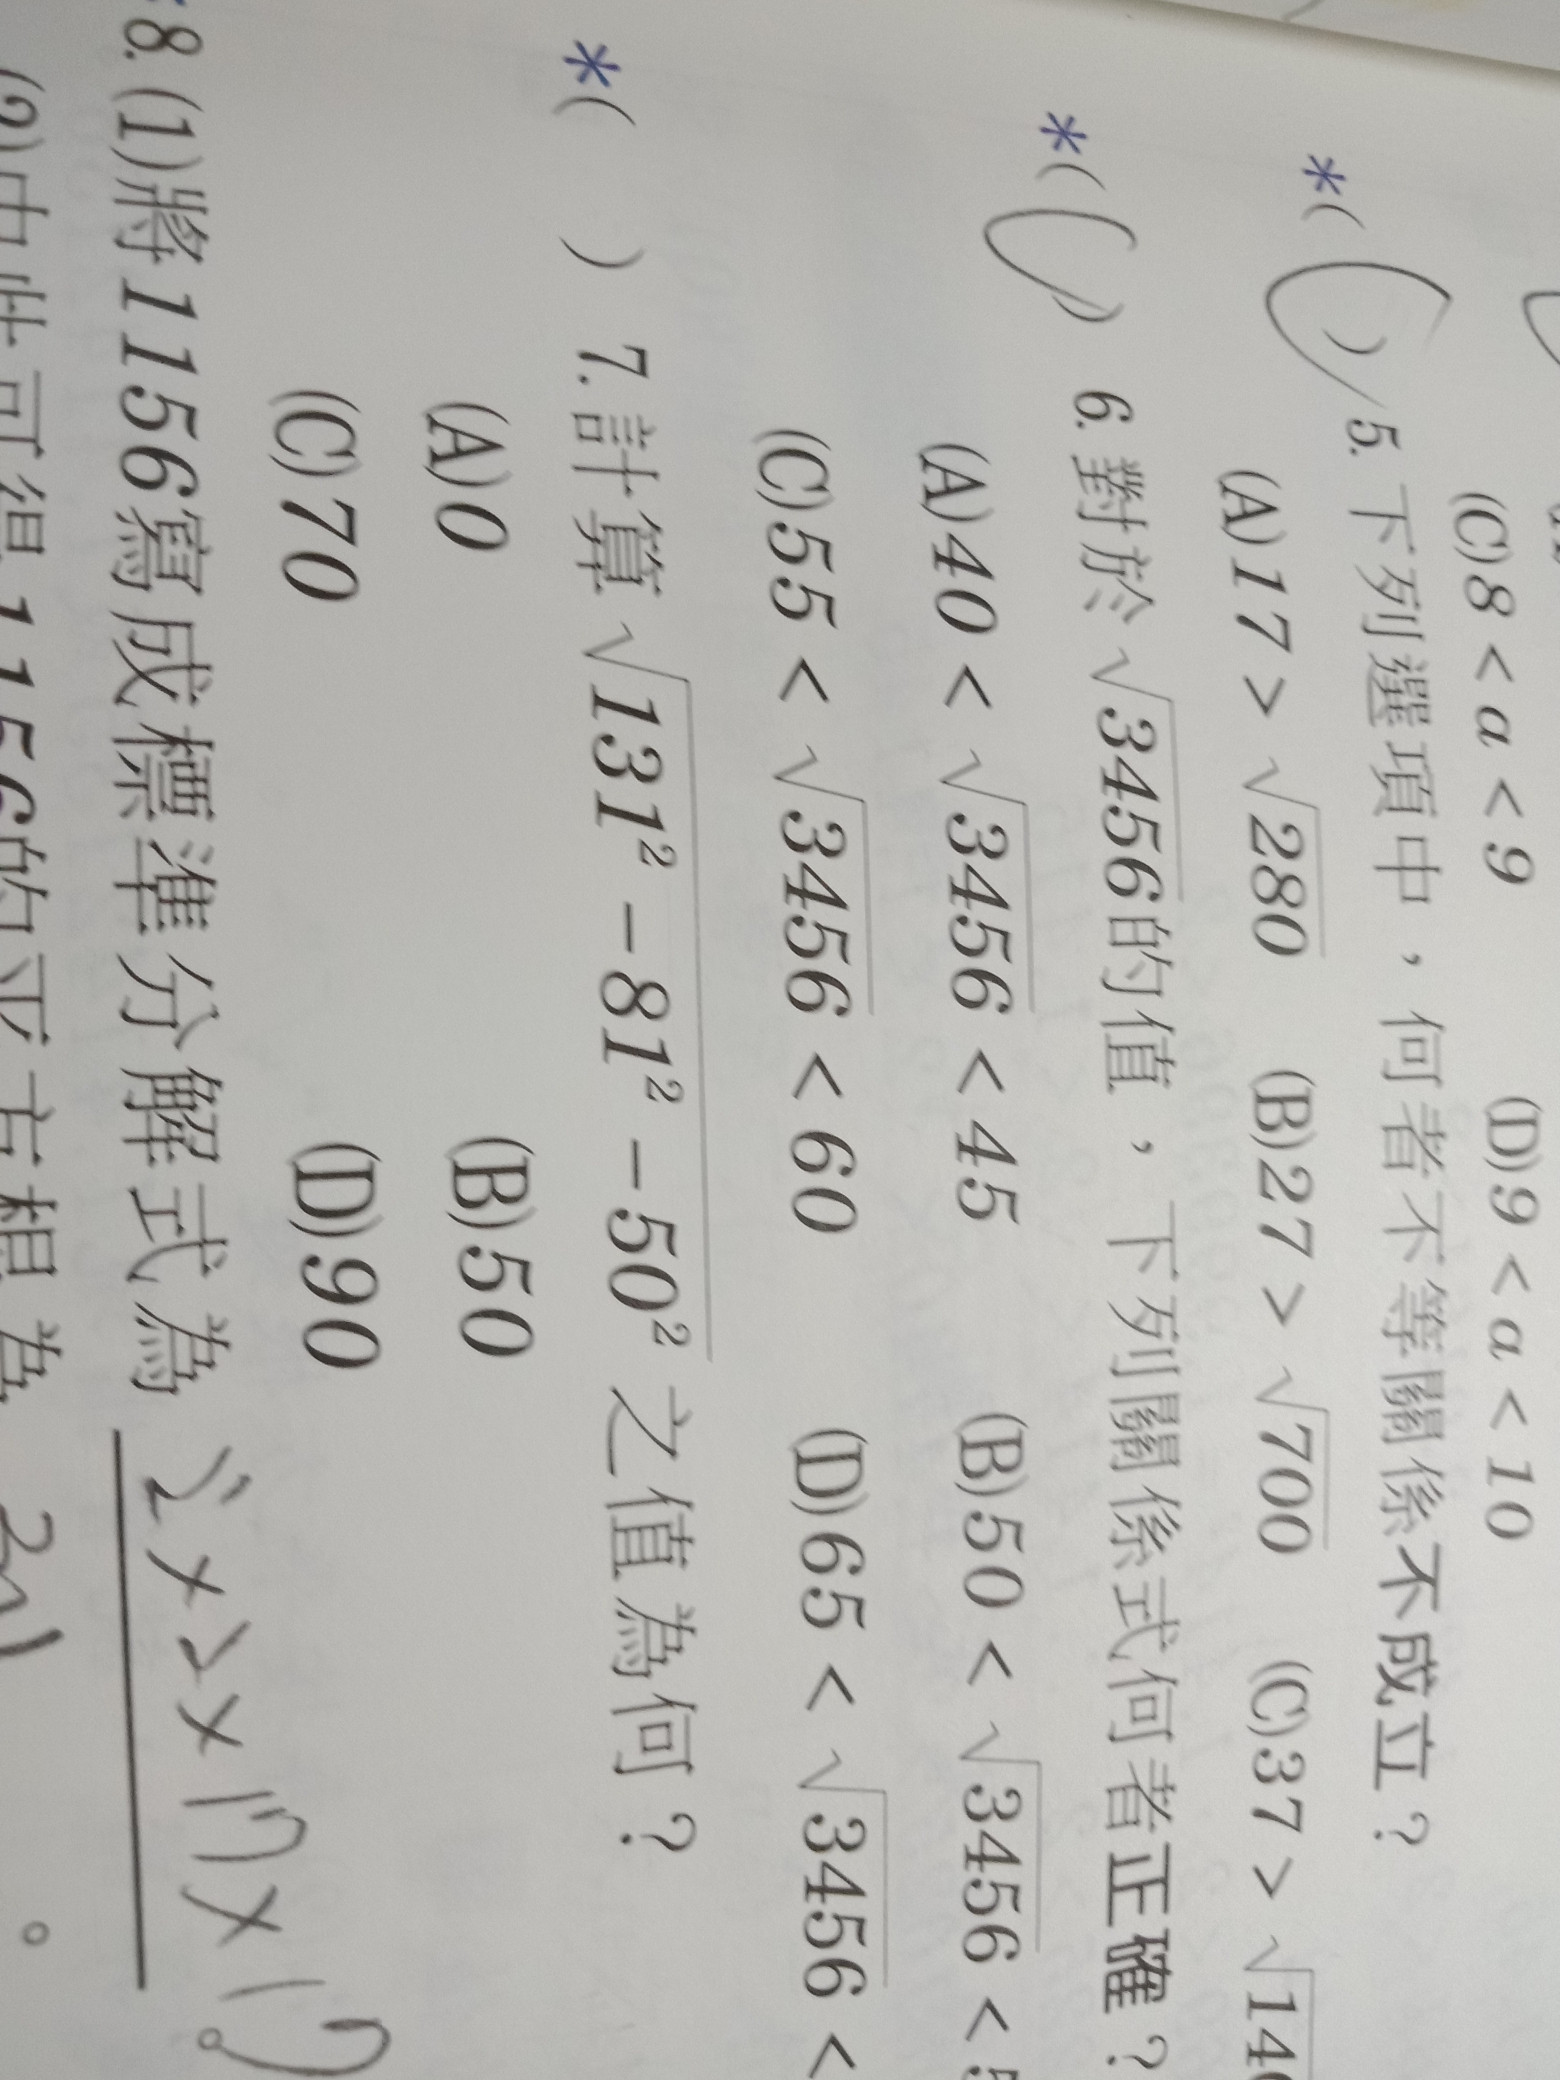 (C)8 < a < 9 (D)9 < a < 10
*( ) 5. 下列選項中，何者不等關係不成立？
(A)17 > √280 (B)27 > √700 (C)37 >
*( ) 6. 對於√3456的值，下列關係式何者正確？
(A)40 < √3456 < 45 (B)50 < √3456 <
(C)55 < √3456 < 60 (D)65 < √3456 <
*( ) 7. 計算√131² − 81² − 50² 之值為何？
(A)0 (B)50
(C)70 (D)90
8. (1)將1156寫成標準分解式為 2×2×17×17。
(2)由此可得1156的平方根為 。